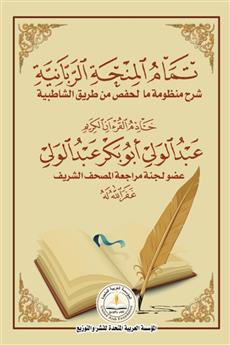 تمام المنحة الربانية
شرح منظومة ما لحفص من طريق الشاطبية
خادم القرءان الكريم
عبد الولي أبو بكر عبد الولي
عضو لجنة مراجعة المصحف الشريف
غفر الله له
المؤسسة العربية المتحدة للنشر والتوزيع